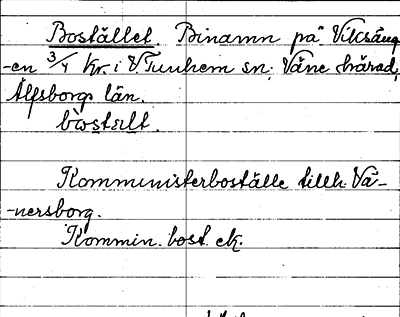 Bostället. Binamn på Viksäng
-en 3/4 kr. i V Tunhem sn, Väne härad,
Älfsborgs län.
bostalt.
Komministerboställe tillh. Vä-
-nersborg.
Kommin. bost. ek.